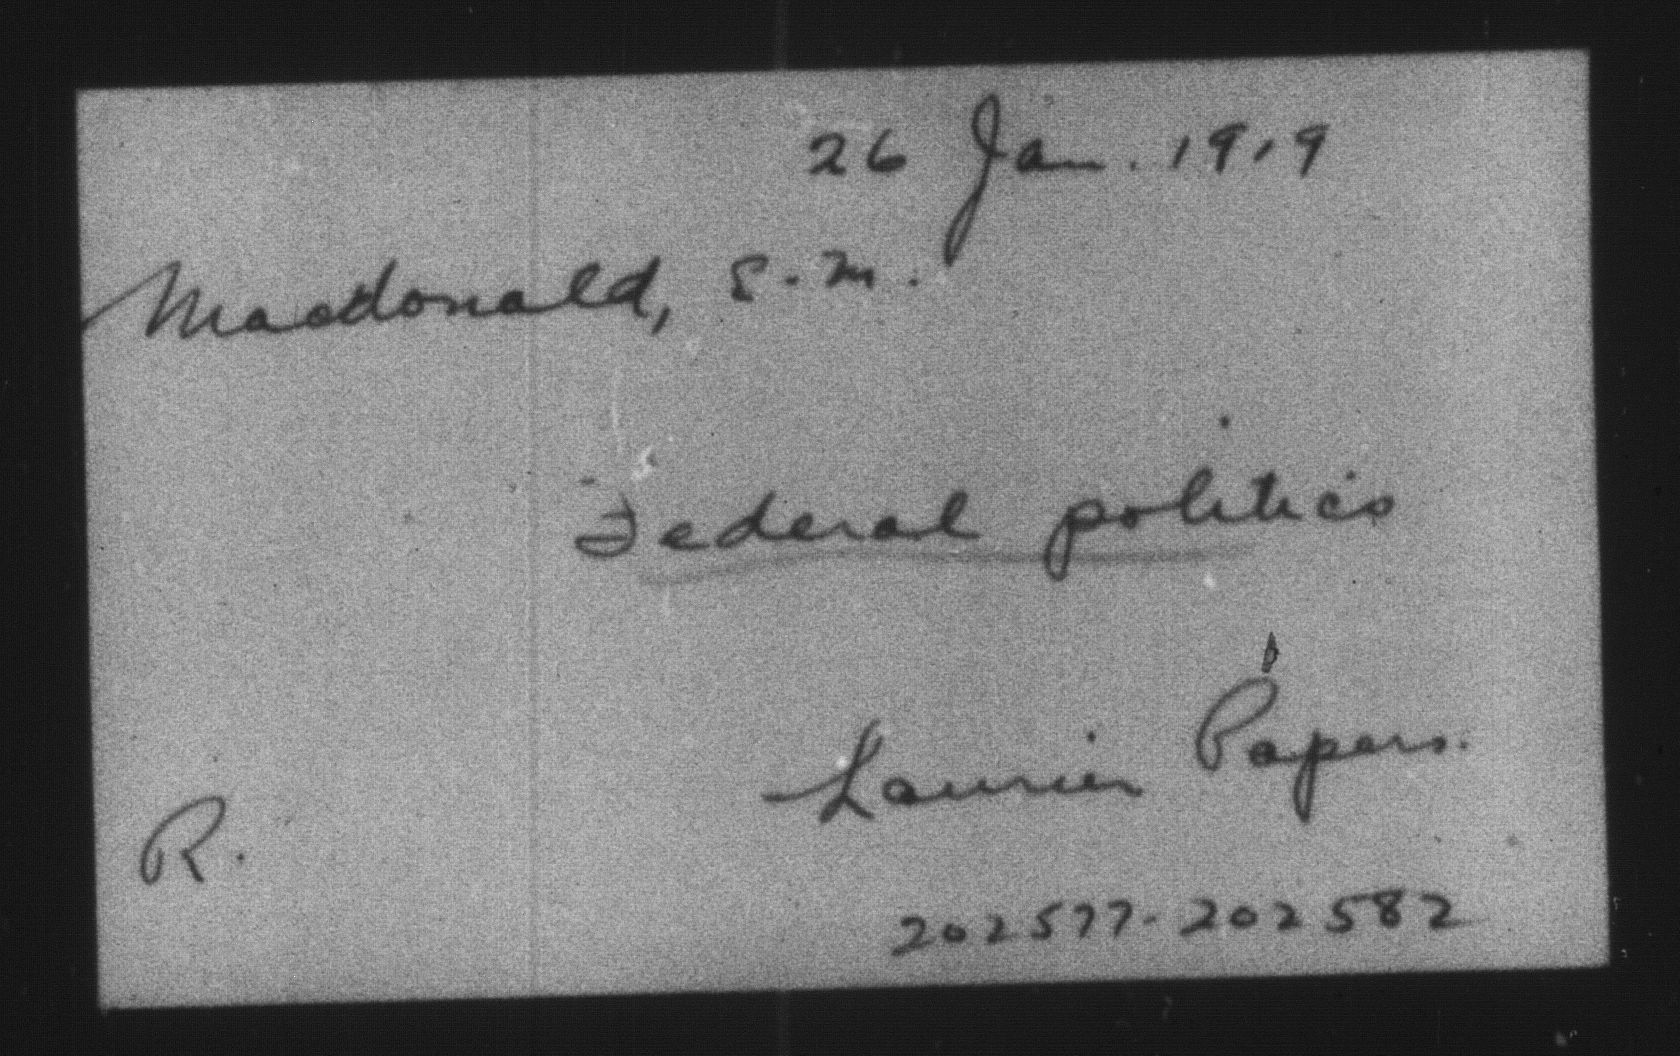 26 Jan. 1919
Macdonald, E. M.
Federal politics
Laurier Papers.
R.
202577-202582